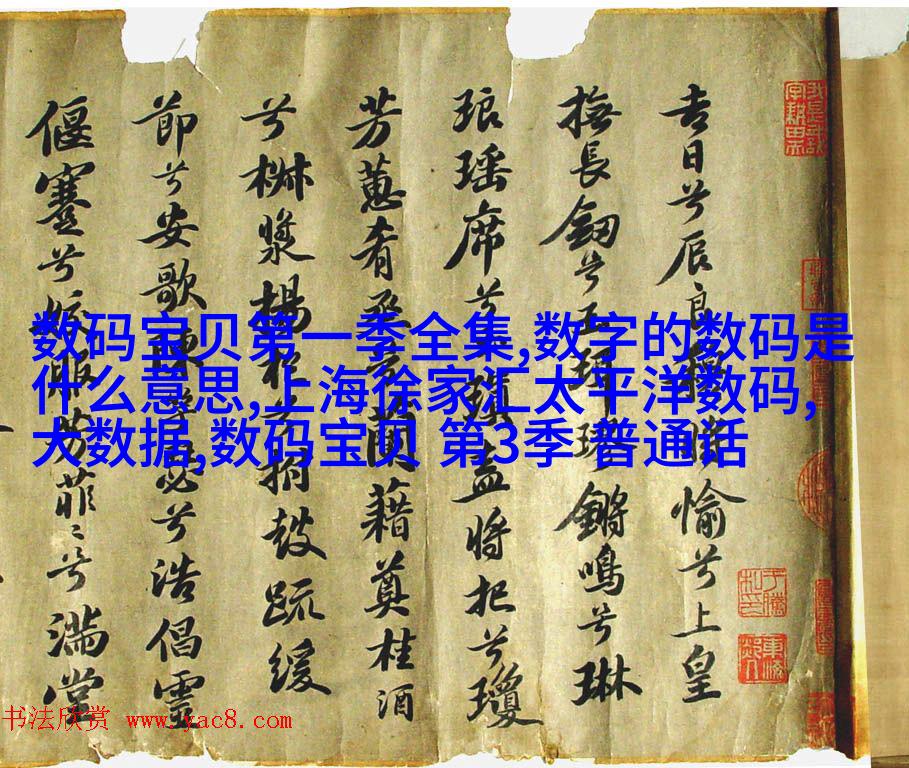 吉日兮辰良穆將愉兮上皇
撫長劔兮玉珥璆鏘鳴兮琳
琅瑶席兮玉瑱盍將把兮瓊
芳蕙肴烝兮蘭藉奠桂酒
兮椒漿揚枹兮拊鼓疏緩
節兮安歌陳竽瑟兮浩倡靈
偃蹇兮姣服芳菲々兮滿堂
数码宝贝第一季全集,数字的数码是
什么意思,上海徐家汇太平洋数码,
大数据,数码宝贝 第3季 普通话
书法欣赏 www.yac8.com